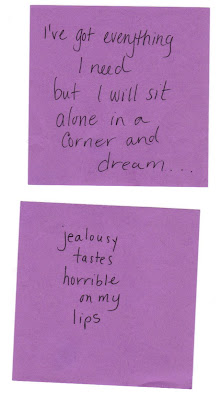 I've got everything
I need
but I will sit
alone in a
corner and
dream...
jealousy
tastes
horrible
on my
lips